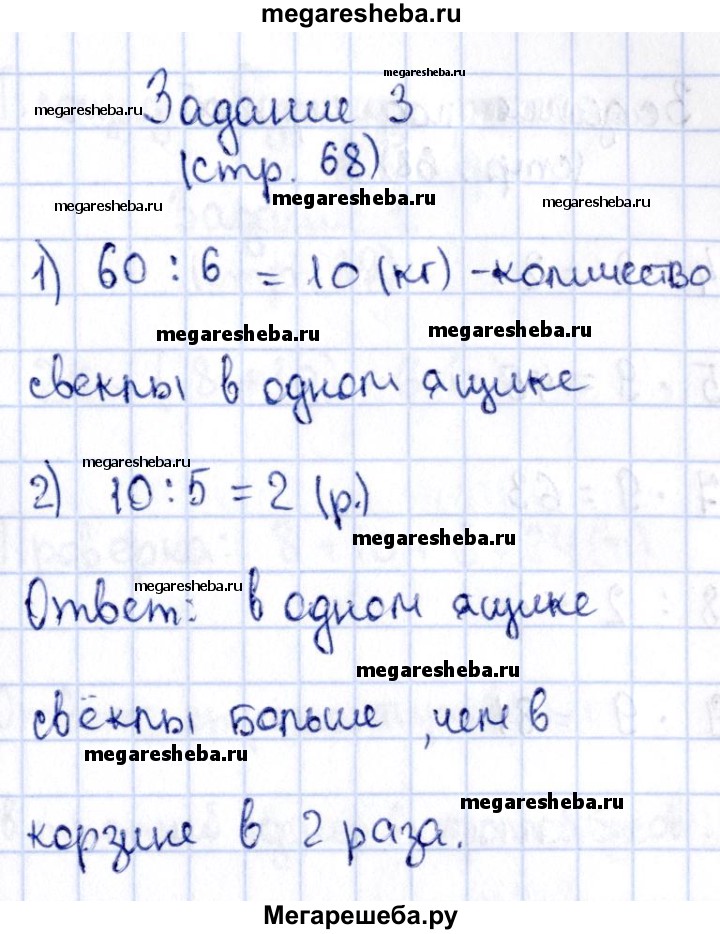 megaresheba.ru
megaresheba.ru
Задание 3
megaresheba.ru
(стр. 68)
megaresheba.ru
megaresheba.ru
megaresheba.ru
1) 60 : 6 = 10 (кг) - количество
megaresheba.ru
megaresheba.ru
свеклы в одном ящике
megaresheba.ru
2) 10 : 5 = 2 (р.)
megaresheba.ru
megaresheba.ru
Ответ: в одном ящике
megaresheba.ru
свёклы больше, чем в
megaresheba.ru
megaresheba.ru
корзине в 2 раза.
Мегарешеба.ру